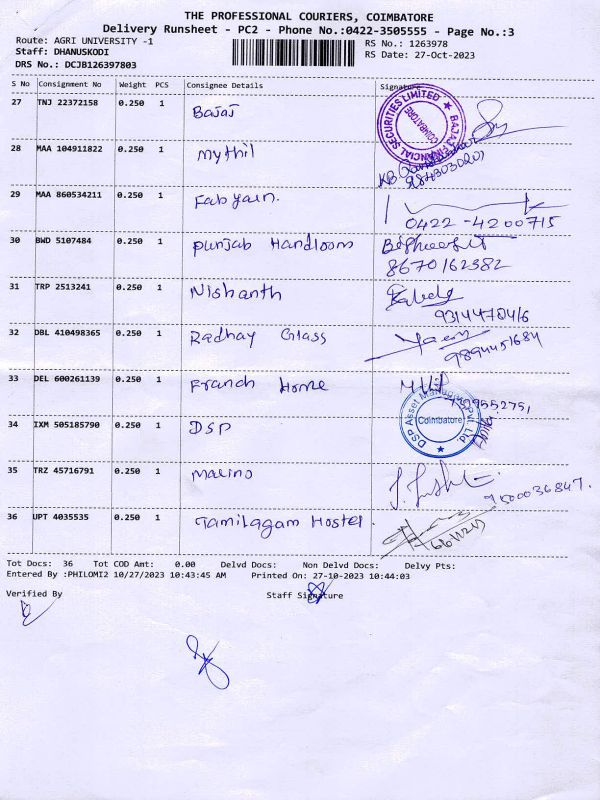 THE PROFESSIONAL COURIERS, COIMBATORE
Delivery Runsheet - PC2 - Phone No.:0422-3505555 - Page No.:3
Route: AGRI UNIVERSITY -1
RS No.: 1263978
Staff: DHANUSKODI
RS Date: 27-Oct-2023
DRS No.: DCJB126397803
S No Consignment No Weight PCS Consignee Details Signature
27 TNJ 22372158 0.250 1 Bajaj
BAJAJ FINANCIAL SECURITIES LIMITED ★ COIMBATORE
28 MAA 104911822 0.250 1 Mythil
9843030201
29 MAA 860534211 0.250 1 Fabyarn.
0422 -4200715
30 BWD 5107484 0.250 1 punjab Handloom
8670162382
31 TRP 2513241 0.250 1 Nishanth
9314470416
32 DBL 410498365 0.250 1 Radhay Glass
9894451684
33 DEL 600261139 0.250 1 Franch Home
34 IXM 505185790 0.250 1 DSP
DSP Asset Managers Pvt. Ltd. ★ Coimbatore
35 TRZ 45716791 0.250 1 Marino
9500036847.
36 UPT 4035535 0.250 1 Tamilagam Hostel.
Tot Docs: 36 Tot COD Amt: 0.00 Delvd Docs: Non Delvd Docs: Delvy Pts:
Entered By :PHILOMI2 10/27/2023 10:43:45 AM Printed On: 27-10-2023 10:44:03
Verified By Staff Signature